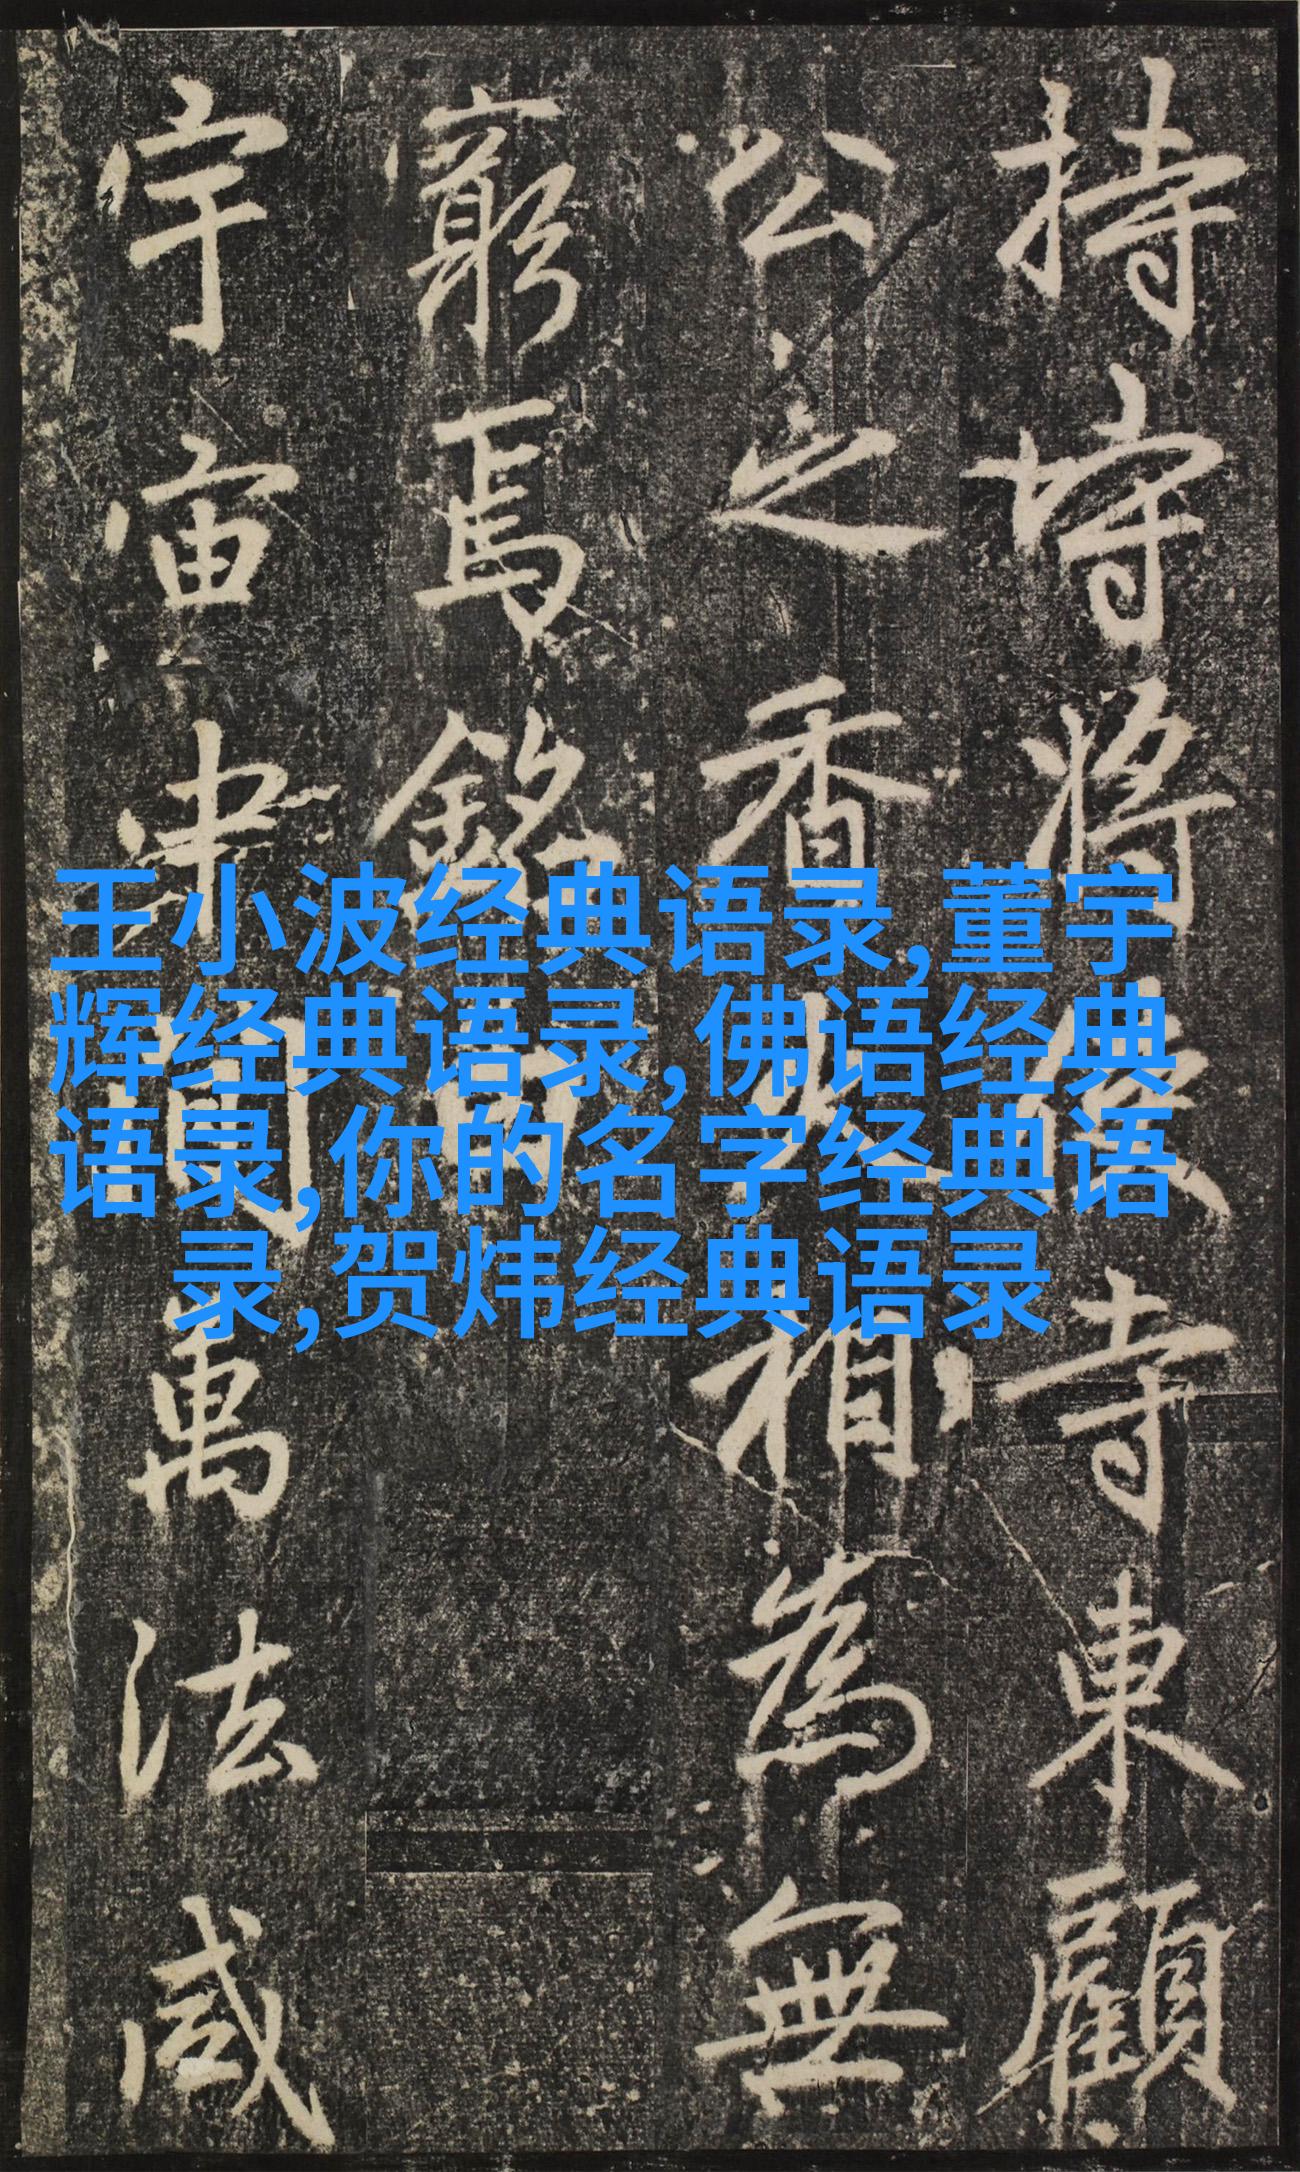 王小波经典语录,董宇
辉经典语录,佛语经典
语录,你的名字经典语
录,贺炜经典语录
持 將 寺東顧
公之香火相為無
窮焉銘曰
宇宙中間萬法咸